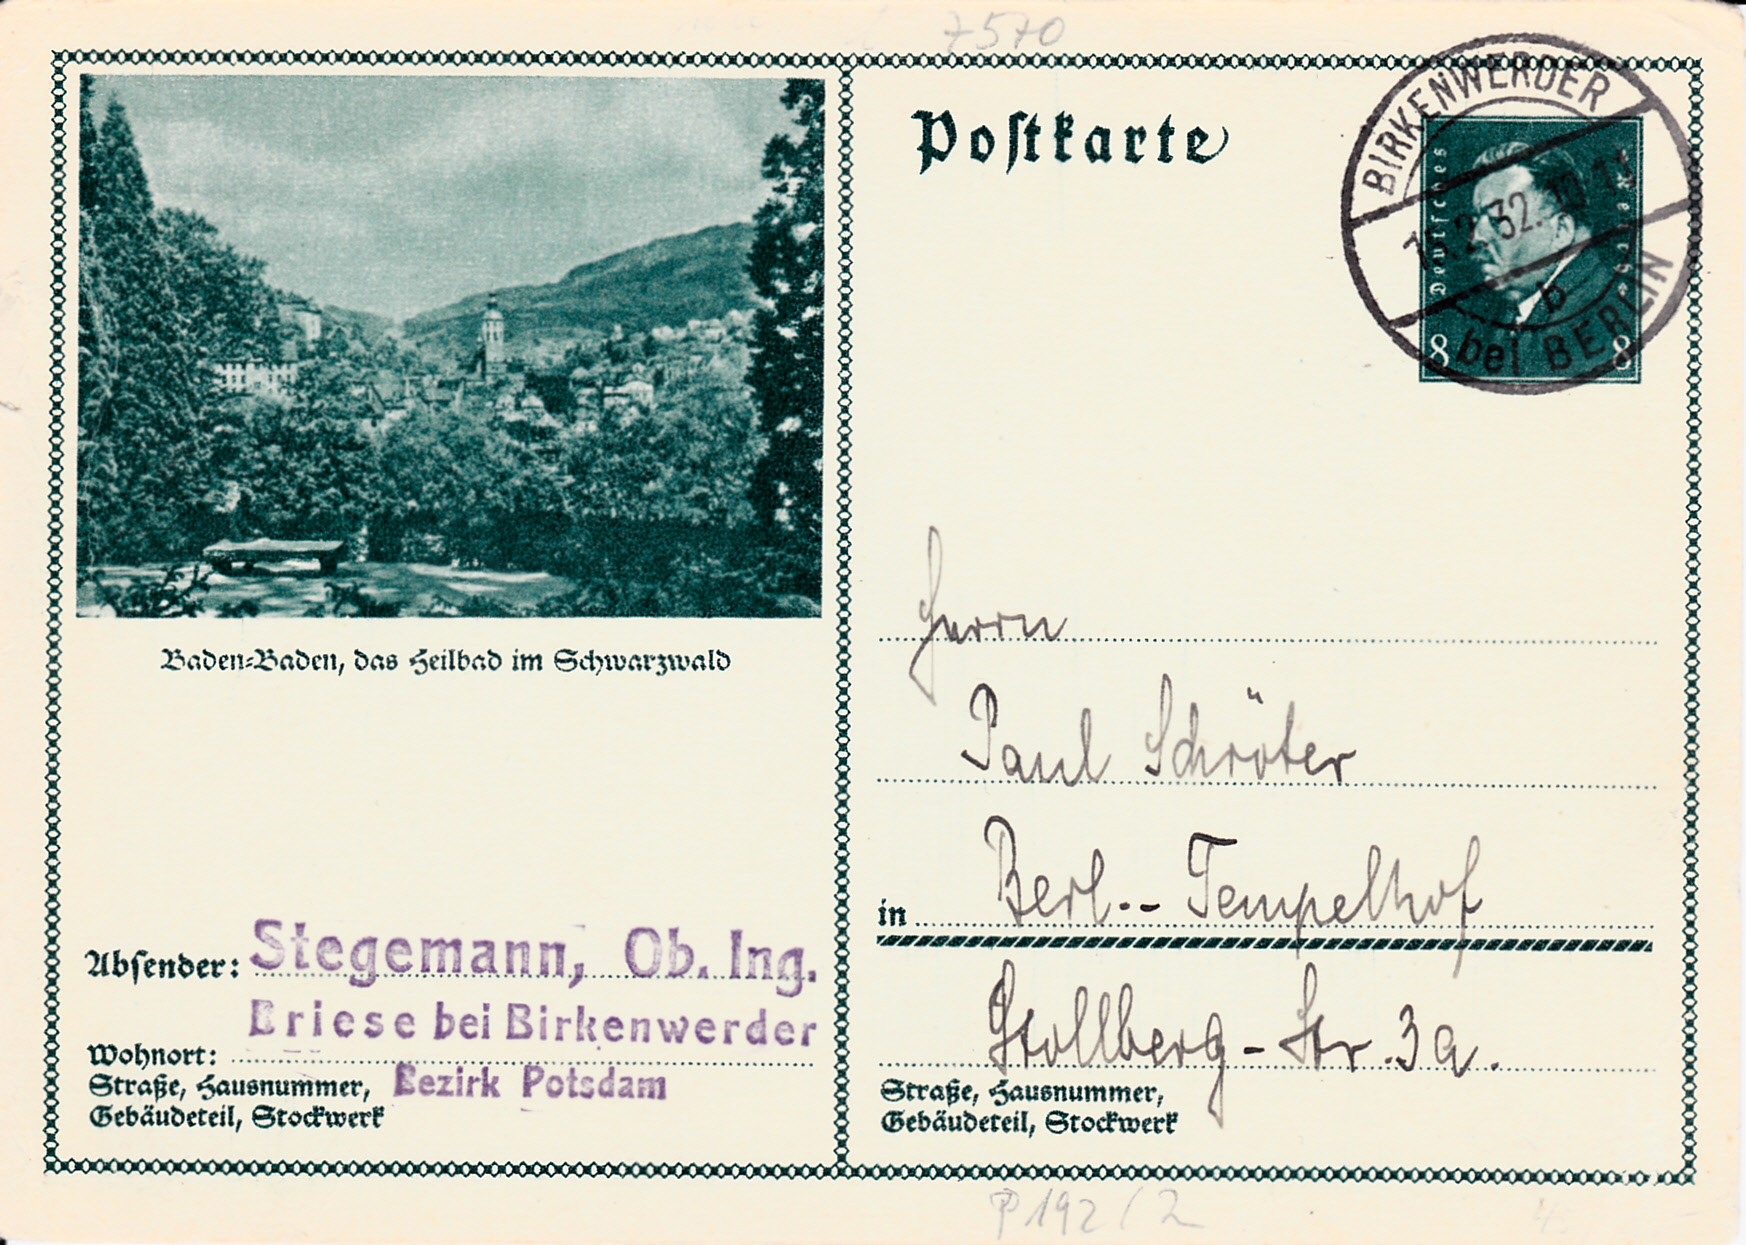 7570
Postkarte
BIRKENWERDER
2.32. 10-11
b
bei BERLIN
Deutsches
8 8
Baden-Baden, das Heilbad im Schwarzwald
Herrn
Paul Schröter
in Berl.-Tempelhof
Stollberg-Str. 3a.
Straße, Hausnummer,
Gebäudeteil, Stockwerk
Absender: Stegemann, Ob. Ing.
Briese bei Birkenwerder
Wohnort:
Straße, Hausnummer, Bezirk Potsdam
Gebäudeteil, Stockwerk
P 192 / 2